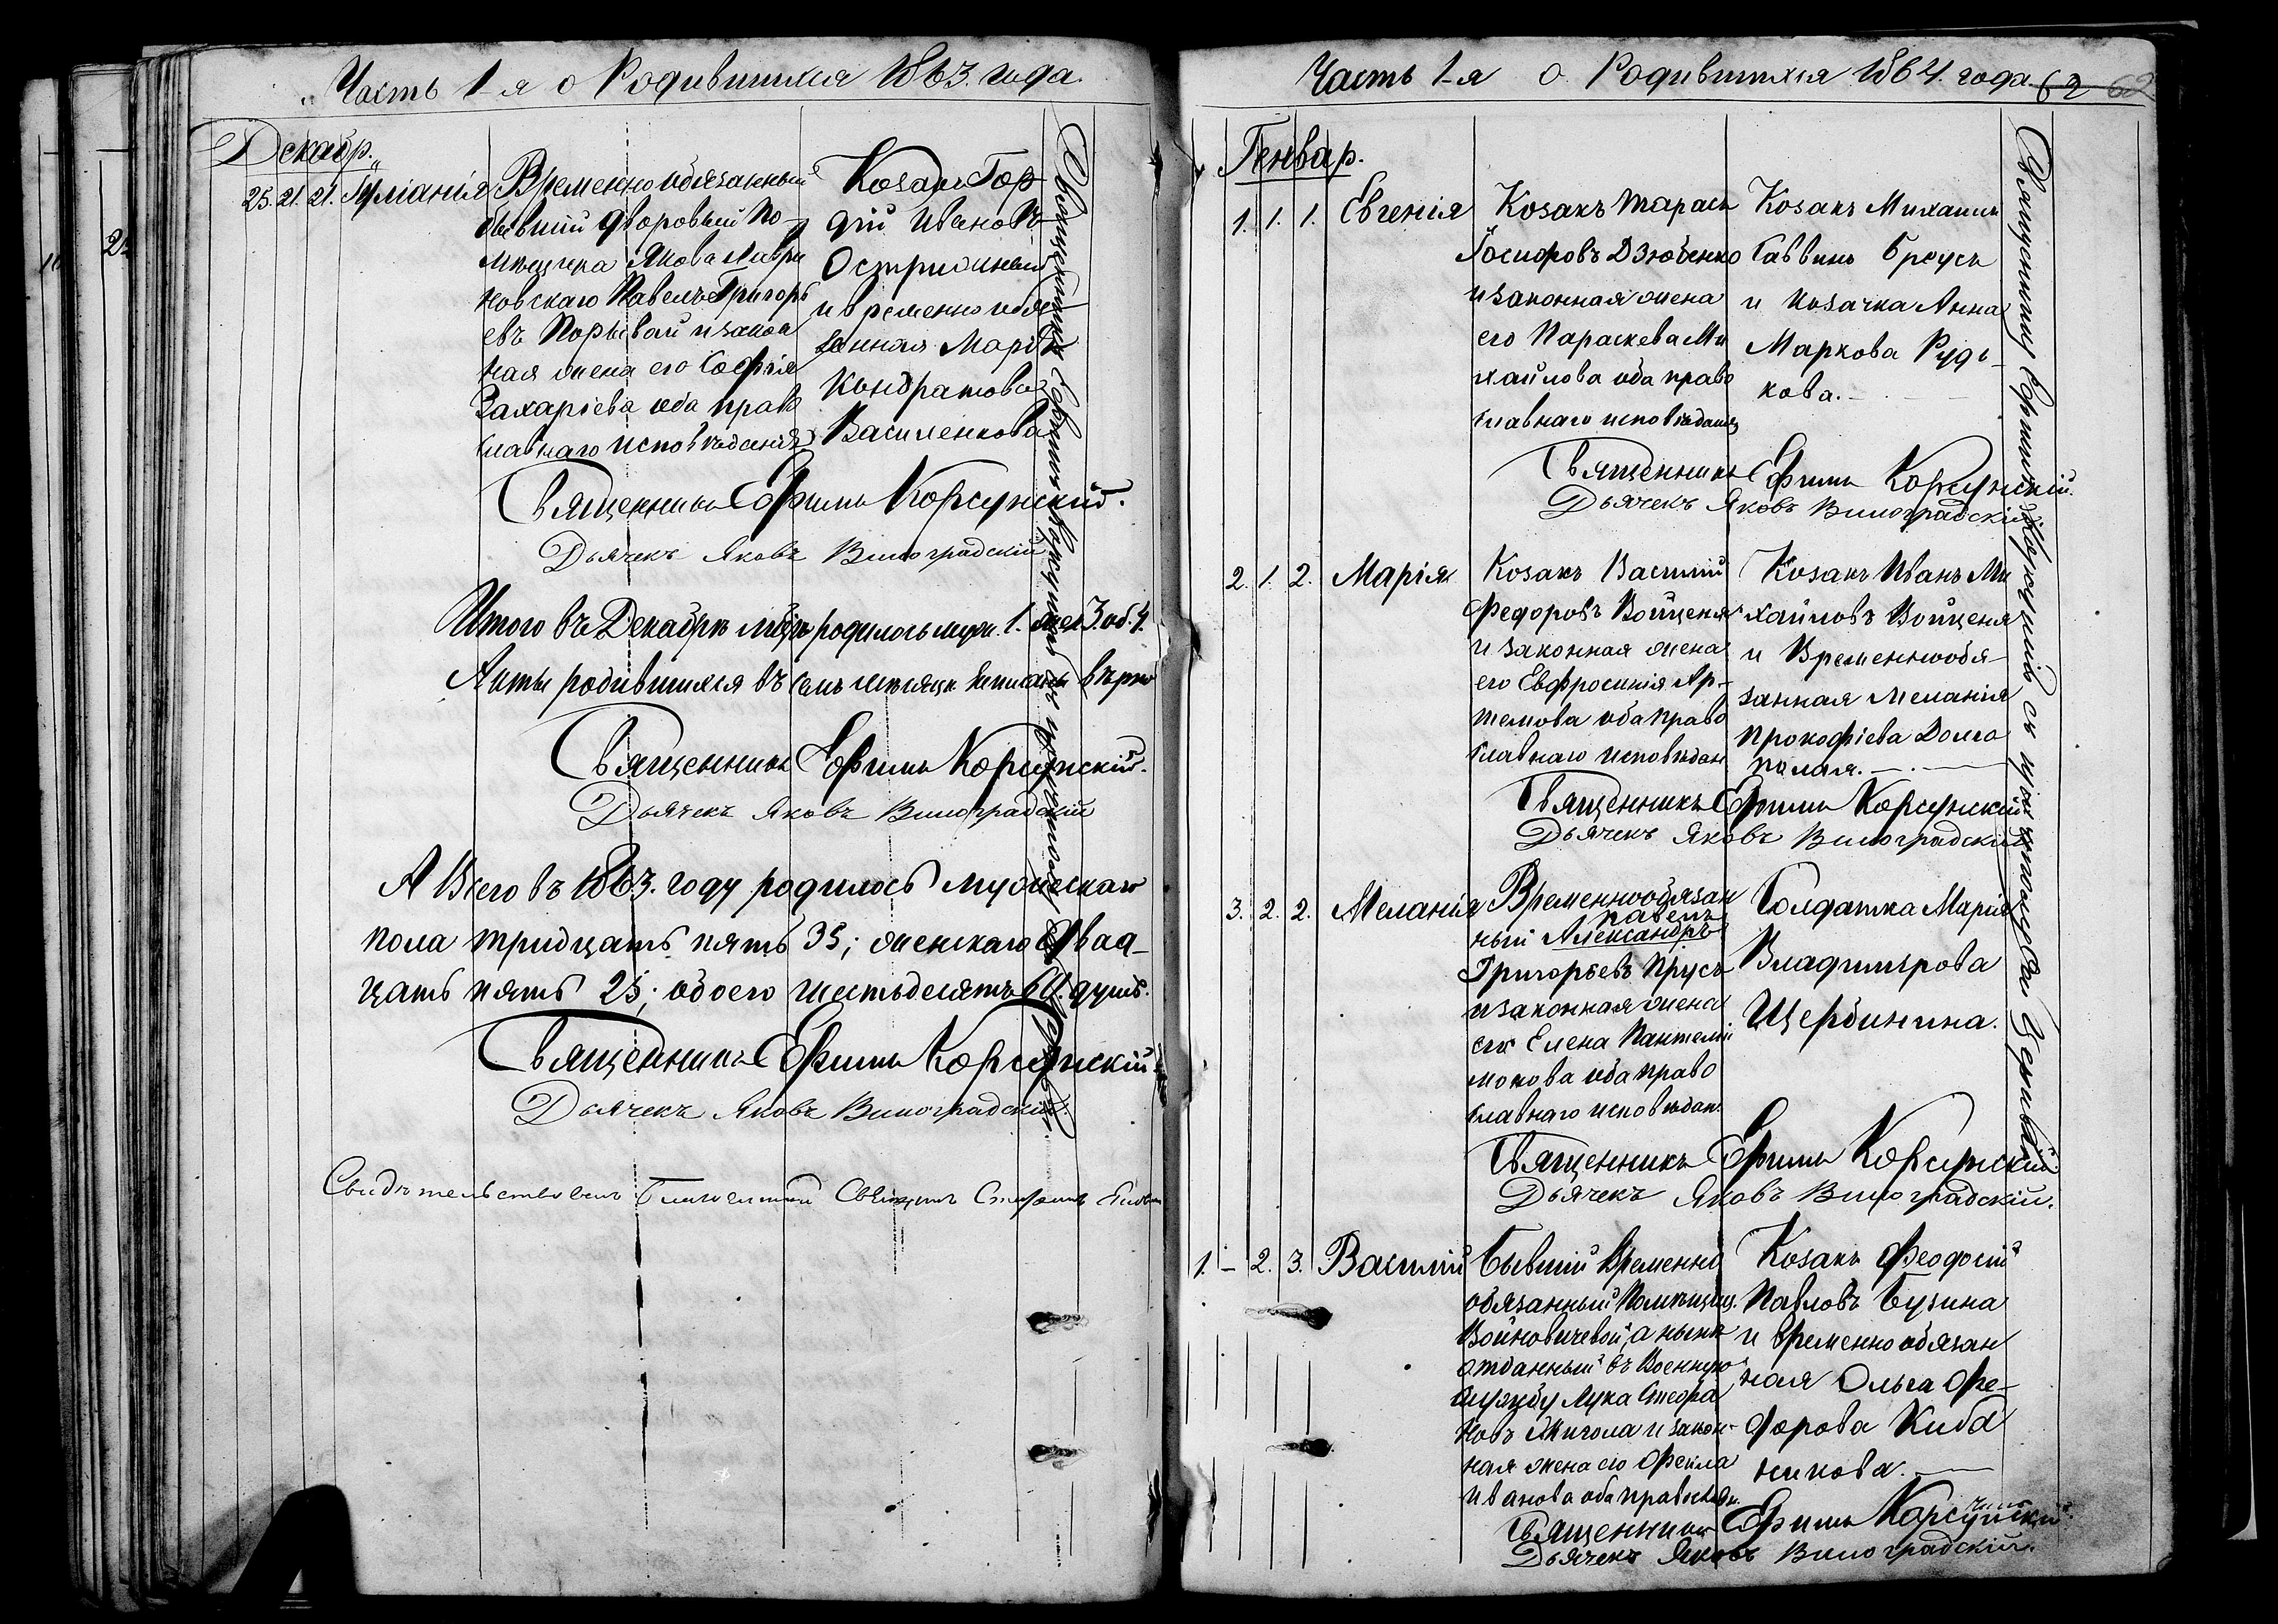 Часть 1-я о Родившихся 1863. года.
Декабр.
25. 21. 21. Іуліанія
Временнообязанный
бывшій дворовый по-
мѣщика Якова Лаври
новскаго Павелъ Григорь
евъ Порывай и закон
ная жена его Софія
Захаріева оба право
славнаго исповѣданія
Козакъ Гор
дій Ивановъ
и временнообя
занная Марія
Кондратова
Василенкова
Священникъ Ефимъ Корсунскій.
Дьячекъ Яковъ Виноградскій
Итого въ Декабрѣ мѣсяцѣ родилось муж. 1. жен 3. об. 4.
Акты родившихся въ семъ мѣсяцѣ писаны вѣрно
Священникъ Ефимъ Корсунскій.
Дьячекъ Яковъ Виноградскій
А Всего въ 1863. году родилось мужескаго
пола тридцать пять 35; женскаго двад-
цать пять 25; обоего шестьдесятъ 60. душъ.
Священникъ Ефимъ Корсунскій
Дьячекъ Яковъ Виноградскій.
Свидѣтельствовалъ Благочинный Священ
Священникъ Ефимъ Корсунскій съ
Часть 1-я о Родившихся 1864. года. 62 62
Генвар.
1. 1. 1. Евгенія
Козакъ Тарасъ
Іосифовъ Дзюбенко
и законная жена
его Параскева Ми
хайлова оба право
славнаго исповѣданія
Козакъ Михаилъ
Саввинъ Брусъ
и козачка Анна
Маркова Рудь-
кова.
Священникъ Ефимъ Корсунскій.
Дьячекъ Яковъ Виноградскій
2. 1. 2. Марія
Козакъ Василій
Федоровъ Войценя
и законная жена
его Евфросинія Ар-
темова оба право
славнаго исповѣдан.
Козакъ Иванъ Ми
хайловъ Войценя
и Временнообя-
занная Меланія
Прокофіева Долго
полая.
Священникъ Ефимъ Корсунскій
Дьячекъ Яковъ Виноградскій
3. 2. 2. Меланія
Временнообязан
Павелъ
ный Александръ
Григорьевъ Прусъ
и законная жена
его Елена Пантелей
монова оба право
славнаго исповѣдан.
Солдатка Марія
Владимірова
Щербинина.
Священникъ Ефимъ Корсунскій
Дьячекъ Яковъ Виноградскій.
1. – 2. 3. Василій
Бывшій временно
обязанный Помѣщиц.
Войновичевой, а нынѣ
отданный въ Военную
службу Лука Стефа
новъ и закон-
ная жена его Фекла
Иванова оба православн.
Козакъ Феодосій
Павловъ Бузина
и временно обязан
ная Ольга Фе-
дорова Киба
никова.
Священникъ Ефимъ Корсунскій
Дьячекъ Яковъ Виноградскій.
Священникъ Ефимъ Корсунскій съ